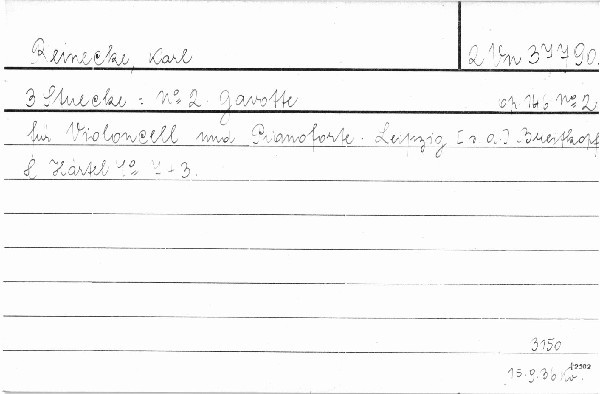 Reinecke, Karl 2 Vn 37790.
3 Stuecke: No 2. Gavotte op 146 No 2
für Violoncell und Pianoforte. Leipzig [s a.] Breitkopf
& Härtel 4o 7+3.
3150
15.9.36 Ko.